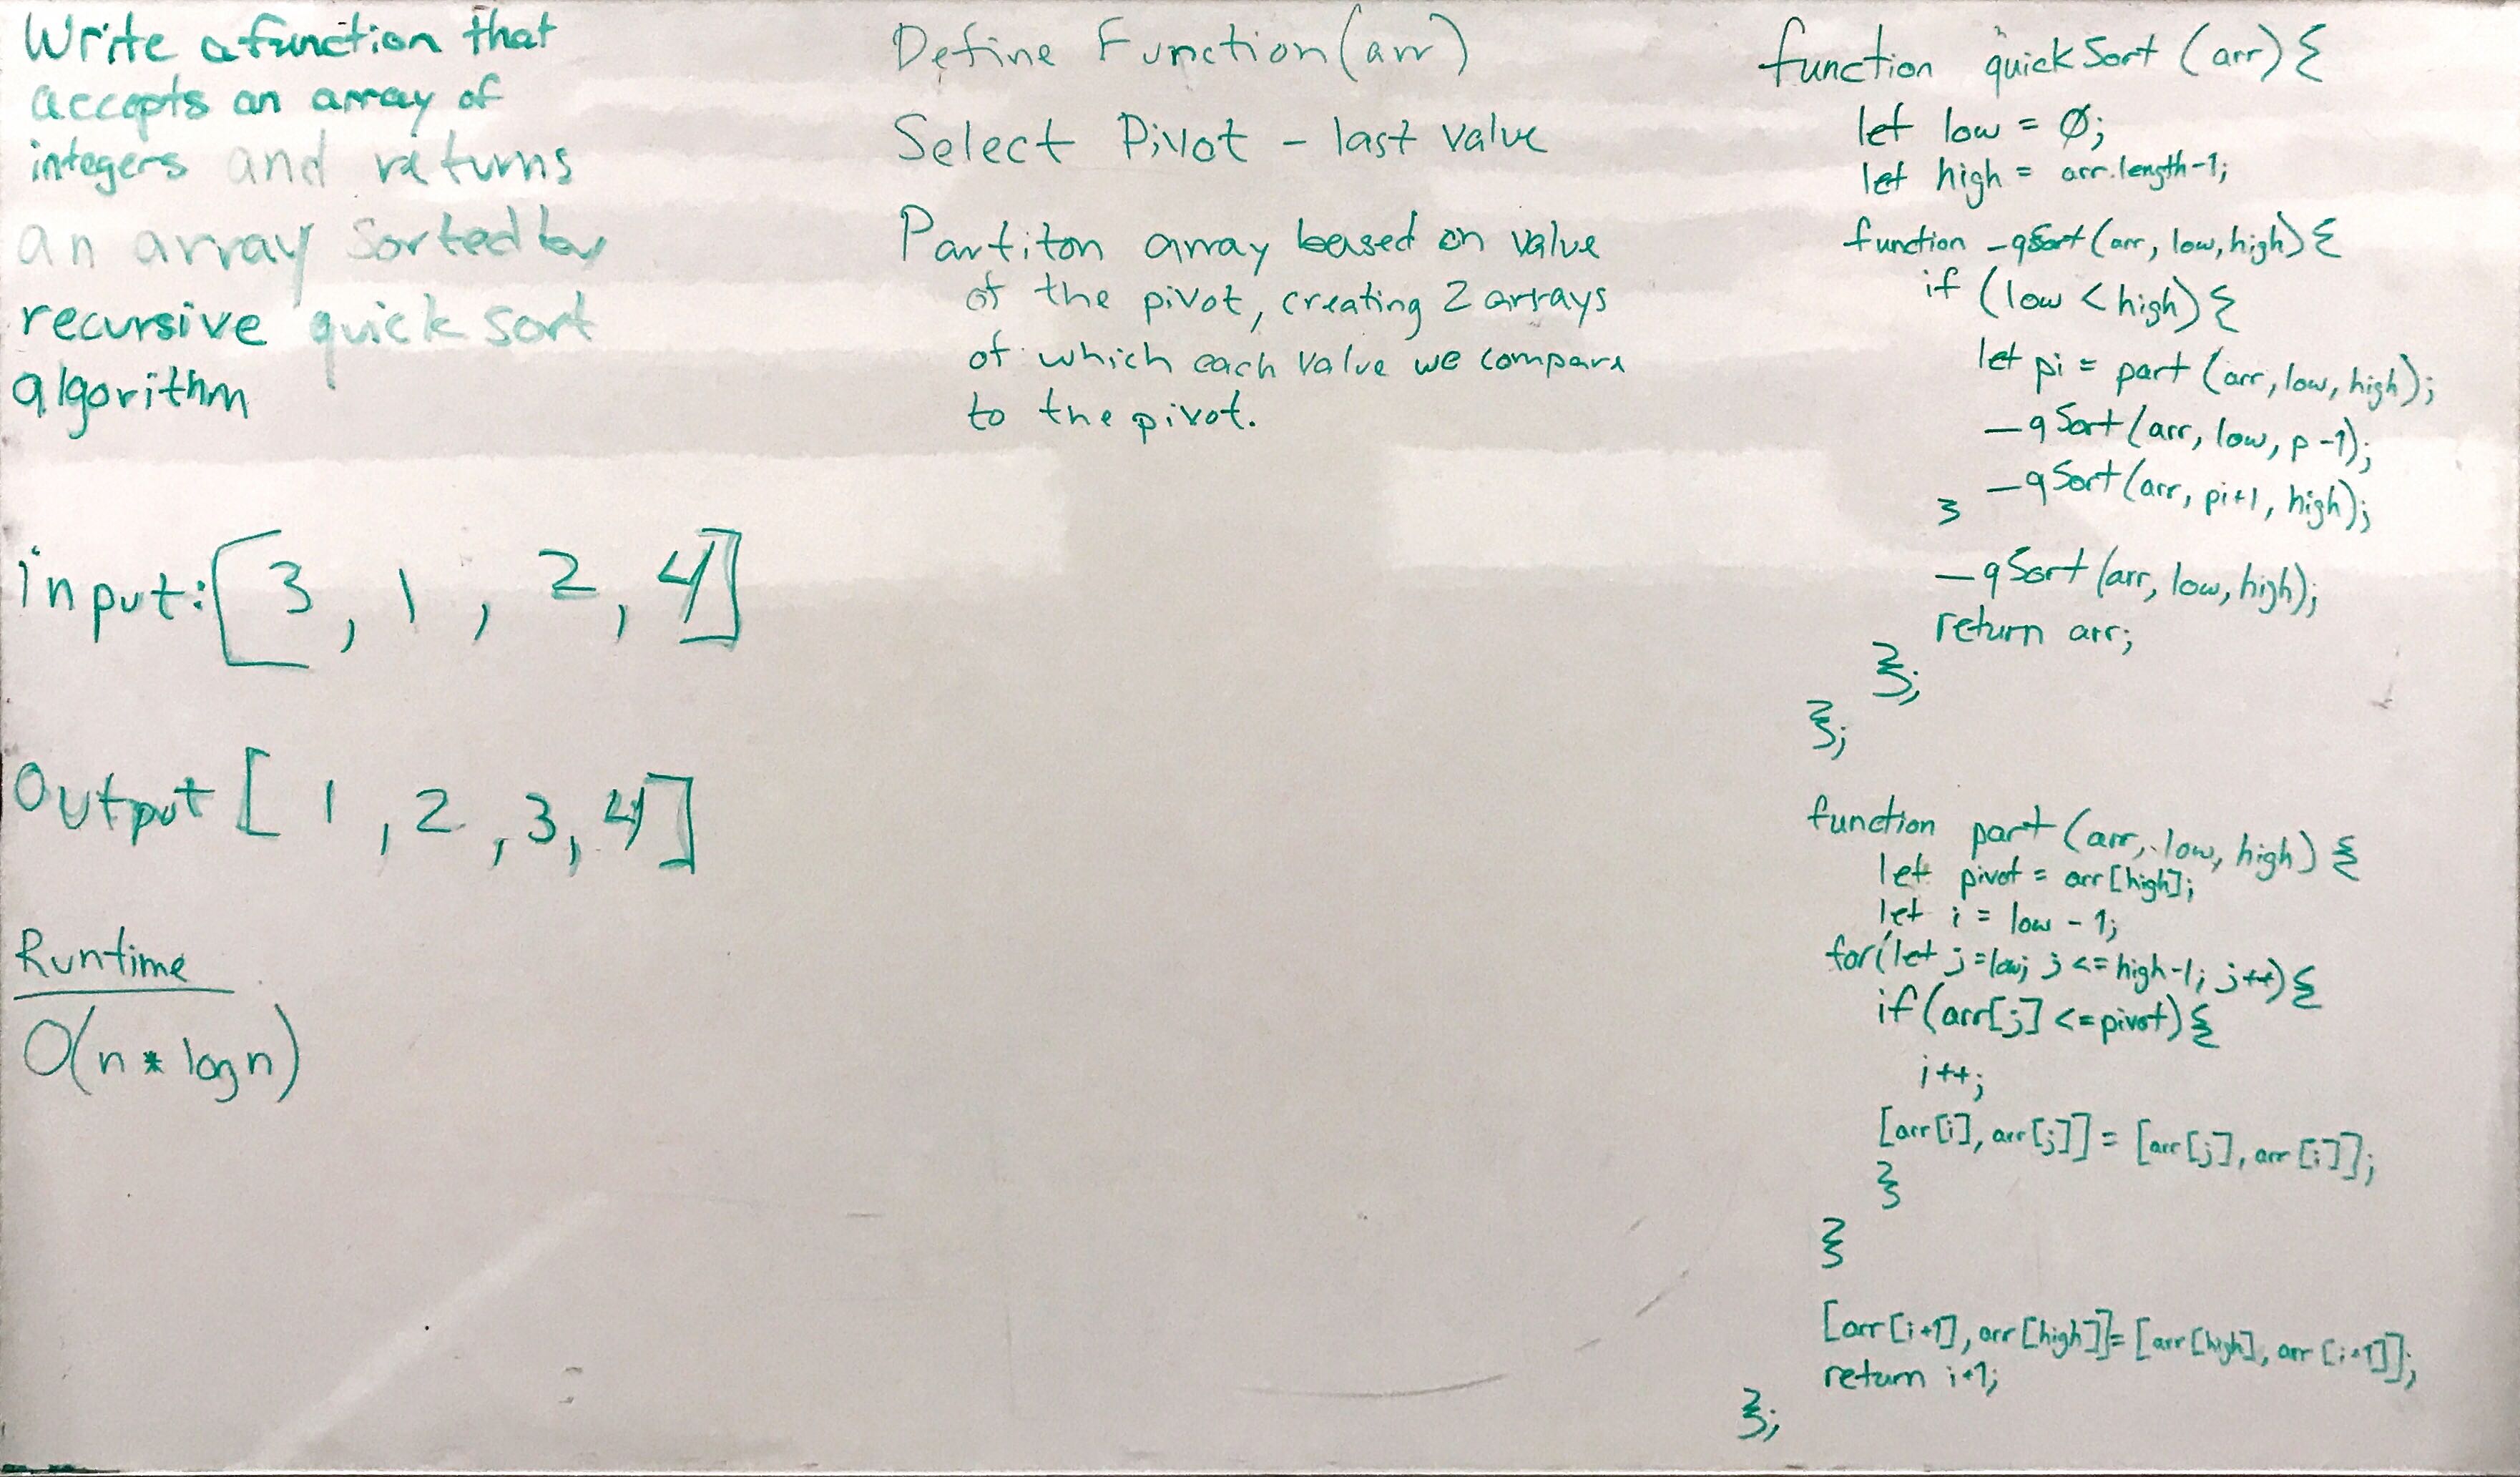 Write a function that
accepts an array of
integers and returns
an array sorted by
recursive quick sort
algorithm
input: [3, 1, 2, 4]
Output [1, 2, 3, 4]
Runtime
O(n * log n)
Define Function (arr)
Select Pivot - last value
Partiton array based on value
of the pivot, creating 2 arrays
of which each value we compare
to the pivot.
function quickSort (arr) {
let low = Ø;
let high = arr.length-1;
function _qSort (arr, low, high) {
if (low < high) {
let pi = part (arr, low, high);
_qSort (arr, low, p-1);
_qSort (arr, pi+1, high);
}
_qSort (arr, low, high);
return arr;
};
};
function part (arr, low, high) {
let pivot = arr[high];
let i = low - 1;
for(let j=low; j <= high-1; j++) {
if (arr[j] <= pivot) {
i++;
[arr[i], arr[j]] = [arr[j], arr[i]];
}
}
[arr[i+1], arr[high]] = [arr[high], arr[i+1]];
return i+1;
};